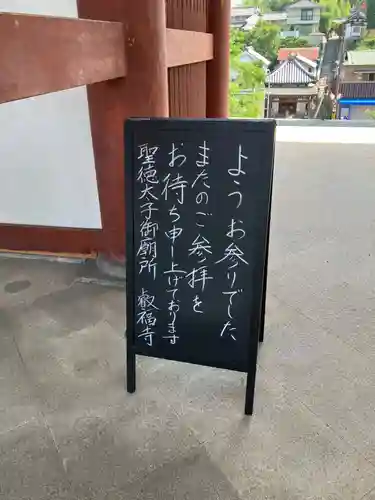 ようお参りでした
またのご参拝を
お待ち申し上げております
聖徳太子御廟所 叡福寺